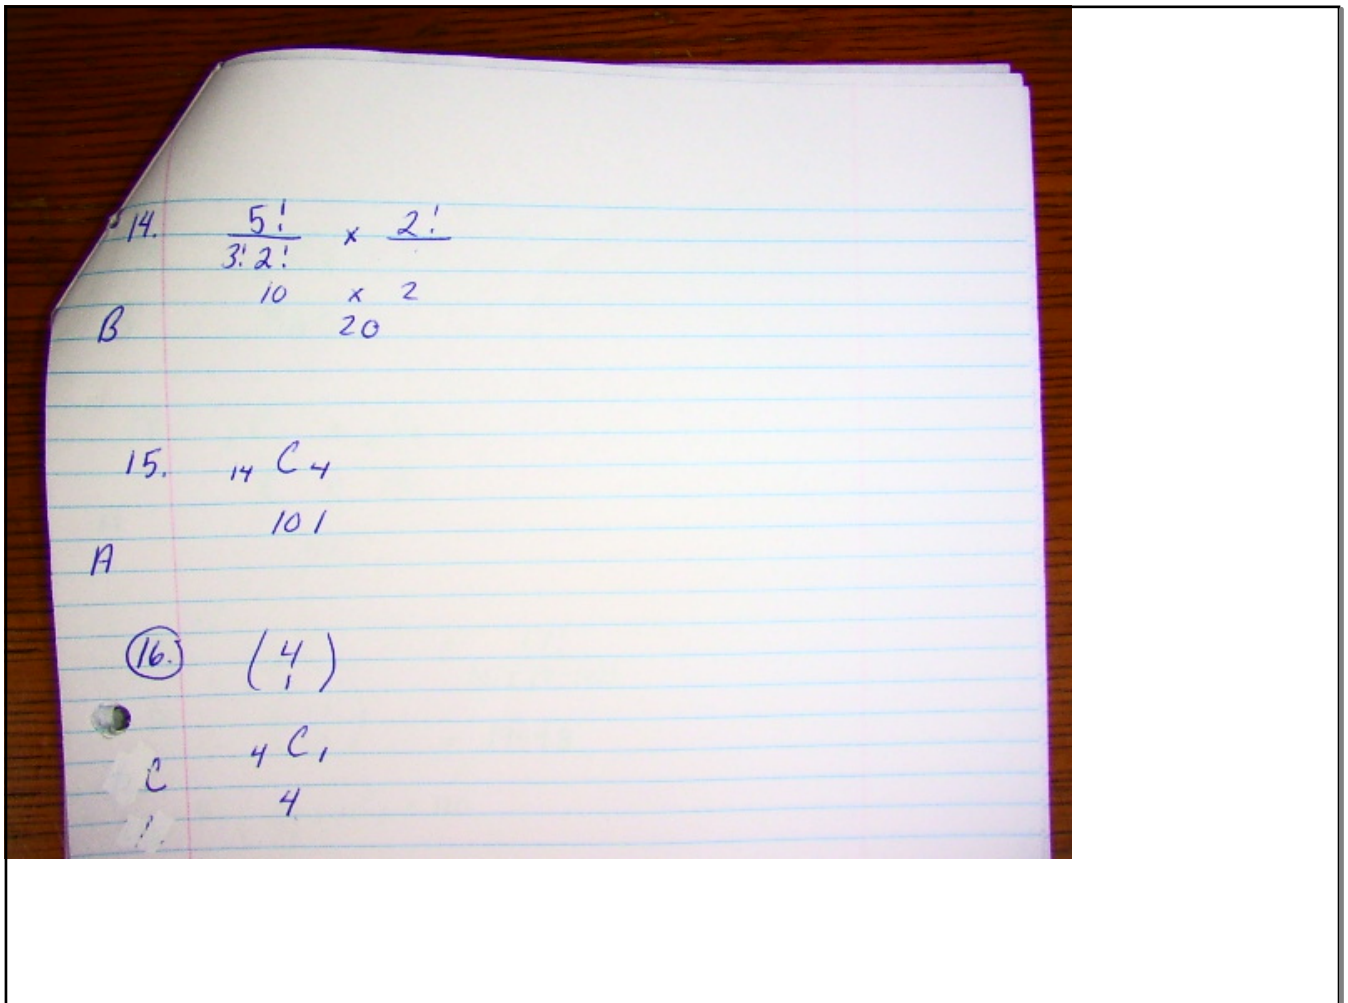 14. 5! × 2!
3! 2!
10 × 2
B 20
15. 14 C 4
101
A
16. (4
1)
4 C 1
C
4